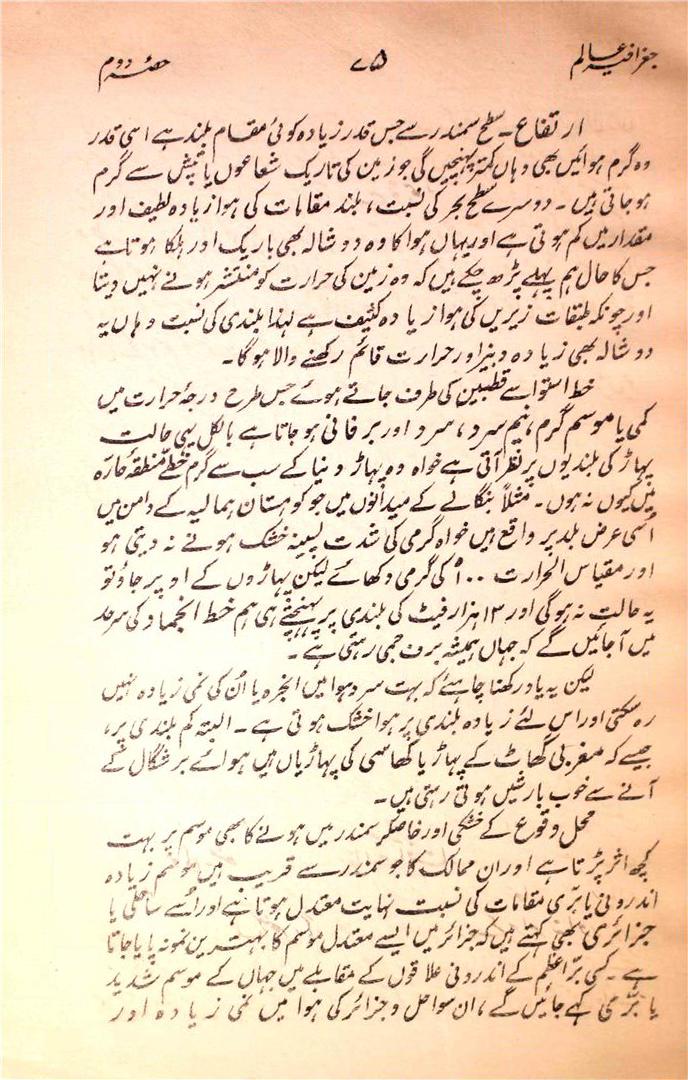 جغرافیہ عالم ۷۵ حصّہ دوم
ارتفاع۔ سطح سمندر سے جس قدر زیادہ کوئی مقام بلند ہے اسی قدر
وہ گرم ہوائیں بھی وہاں کمتر پہنچیں گی جو زمین کی تاریک شعاعوں یا تپش سے گرم
ہو جاتی ہیں۔ دوسرے سطح بحر کی نسبت، بلند مقامات کی ہوا زیادہ لطیف اور
مقدار میں کم ہوتی ہے اور یہاں ہوا کا وہ دوشالہ بھی باریک اور ہلکا ہوتا ہے
جس کا حال ہم پہلے پڑھ چکے ہیں کہ وہ زمین کی حرارت کو منتشر ہونے نہیں دیتا
اور چونکہ طبقات زیریں کی ہوا زیادہ کثیف ہے لہذا بلندی کی نسبت وہاں یہ
دوشالہ بھی زیادہ دبیز اور حرارت قائم رکھنے والا ہو گا۔
خط استوا سے قطبین کی طرف جاتے ہوئے جس طرح درجۂ حرارت میں
کمی یا موسم گرم، نیم سرد، سرد اور برفانی ہو جاتا ہے بالکل یہی حالت
پہاڑ کی بلندیوں پر نظر آتی ہے خواہ وہ پہاڑ دنیا کے سب سے گرم خطّے منطقۂ حارّہ
میں کیوں نہ ہوں۔ مثلاً بنگالے کے میدانوں میں جو کوہستان ہمالیہ کے دامن میں
اُسی عرض بلد پر واقع ہیں خواہ گرمی کی شدت پسینہ خشک ہونے نہ دیتی ہو
اور مقیاس الحرارت ۱۰۰° کی گرمی دکھائے لیکن پہاڑوں کے اوپر جاؤ تو
یہ حالت نہ ہوگی اور ۱۳ ہزار فیٹ کی بلندی پر پہنچتے ہی ہم خط انجماد کی سرحد
میں آ جائیں گے کہ جہاں ہمیشہ برف جمی رہتی ہے۔
لیکن یہ یاد رکھنا چاہئے کہ بہت سرد ہوا میں ابخرہ یا اُن کی نمی زیادہ نہیں
رہ سکتی اور اس لئے زیادہ بلندی پر ہوا خشک ہوتی ہے۔ البتہ کم بلندی پر،
جیسے کہ مغربی گھاٹ کے پہاڑ یا کھاسی کی پہاڑیاں ہیں ہوائے برشگال کے
آنے سے خوب بارشیں ہوتی رہتی ہیں۔
محل وقوع کے خشکی اور خاصکر سمندر میں ہونے کا بھی موسم پر بہت
کچھ اثر پڑتا ہے اور ان ممالک کا جو سمندر سے قریب ہیں موسم زیادہ
اندرونی یا برّی مقامات کی نسبت نہایت معتدل ہوتا ہے اور اُسے ساحلی یا
جزائری بھی کہتے ہیں کہ جزائر میں ایسے معتدل موسم کا بہترین نمونہ پایا جاتا
ہے۔ کسی برّاعظم کے اندرونی علاقوں کے مقابلے میں جہاں کے موسم شدید
یا برّی کہے جائیں گے، ان سواحل و جزائر کی ہوا میں نمی زیادہ اور